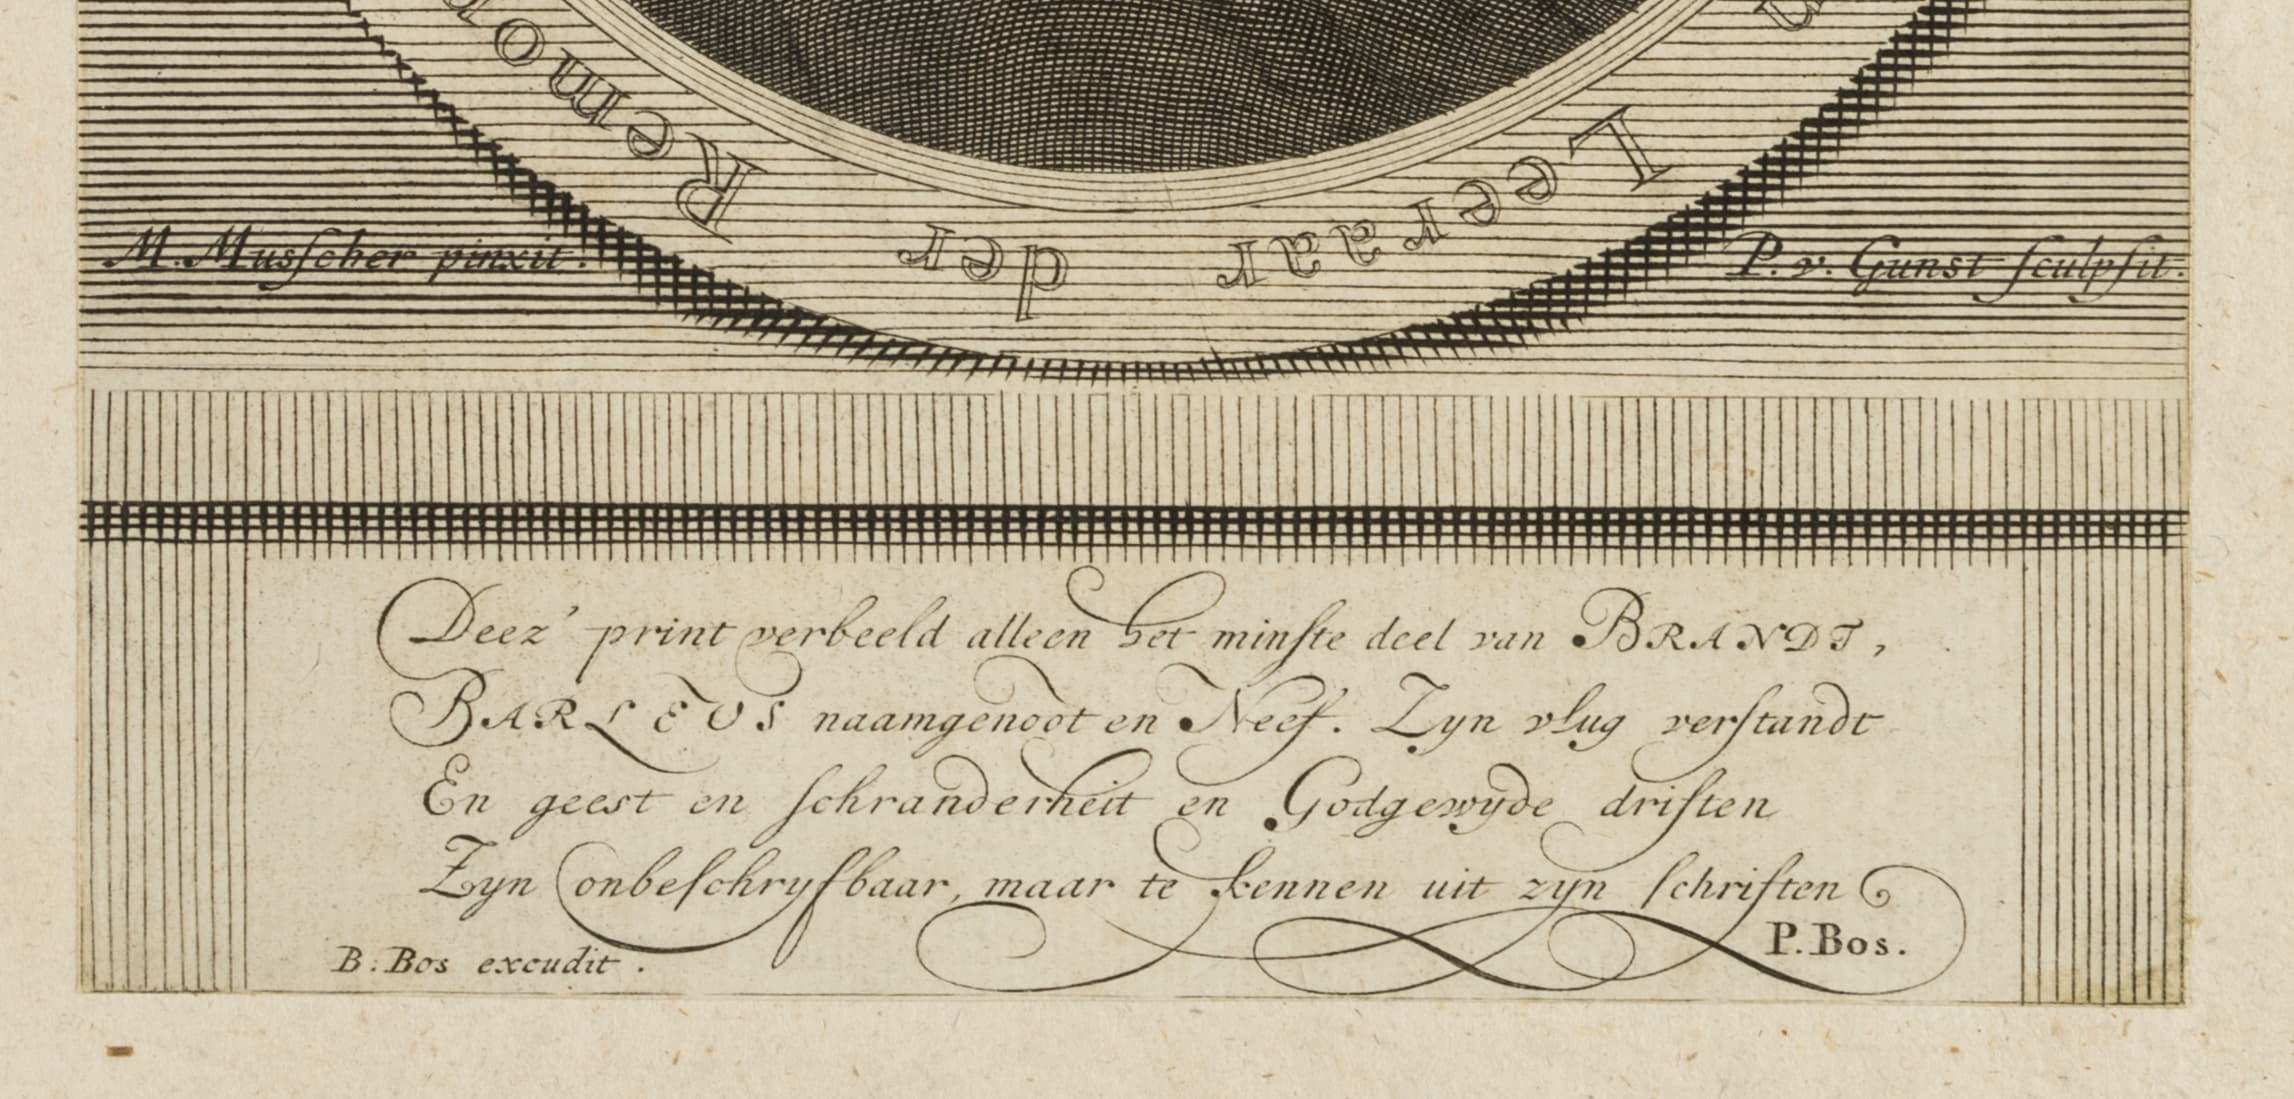 Leeraar der Remo
M. Musscher pinxit.
P. v. Gunst sculpsit.
Deez' print verbeeld alleen het minste deel van BRANDT,
BARLEUS naamgenoot en Neef. Zyn vlug verstandt
En geest en schranderheit en Godgewyde driften
Zyn onbeschryfbaar, maar te kennen uit zyn schriften
P. Bos.
B: Bos excudit.